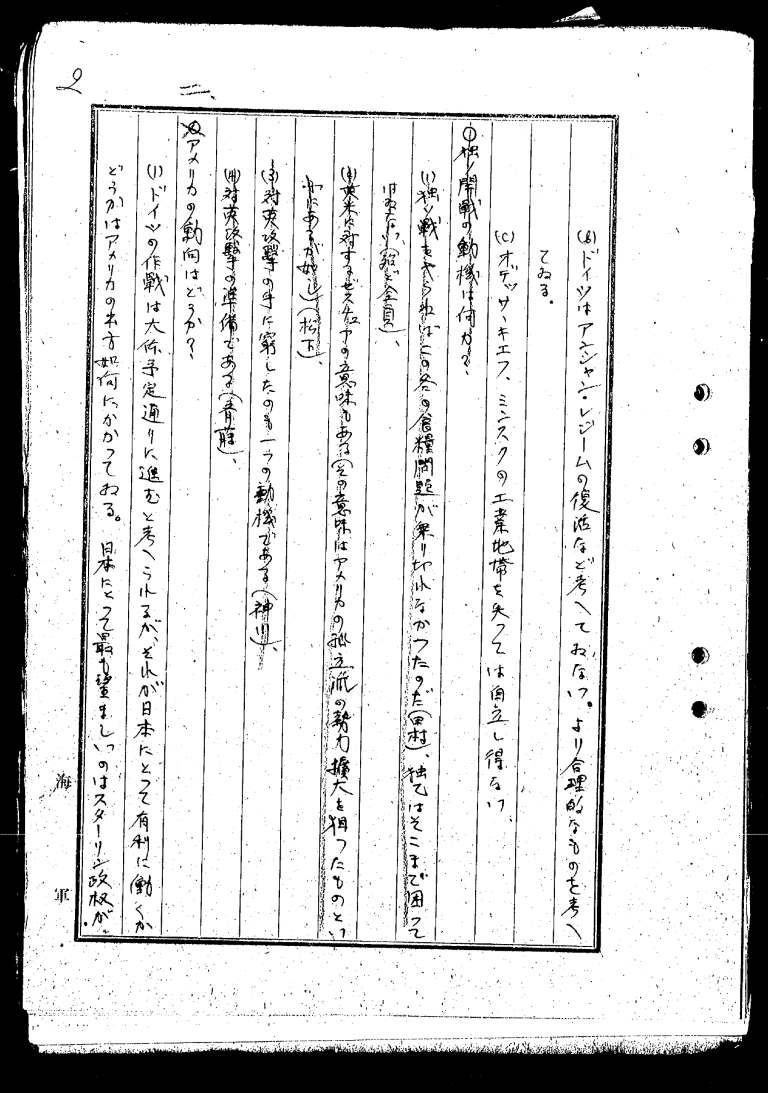 2
二、
(B)ドイツはアンシャン・レジームの復活など考へておない。より合理的なものを考へ
てゐる。
(C)オデッサ、キエフ、ミンスクの工業地帯を失つては自立し得ない
①独ソ開戦の動機は何か？
(1)独ソ戦をやらねばこの冬の食糧問題が乗り切れなかつたのだ(田村)、独乙はそこまで困つて
はゐない(殆ど全員)、
(2)英米に対するゼスチュアの意味もある(その意味はアメリカの孤立派の勢力擴大を狙つたものとい
ふにあるが如し)(松下)、
(3)対英攻撃の手に窮したのも一つの動機である(神川)、
(4)対英攻撃の準備である(斉藤)、
アメリカの動向はどうか？
(1)ドイツの作戦は大体予定通りに進むと考へられるが、それが日本にとつて有利に働くか
どうかはアメリカの出方如何にかかつてゐる。日本にとつて最も望ましいのはスターリン政权が、
海軍